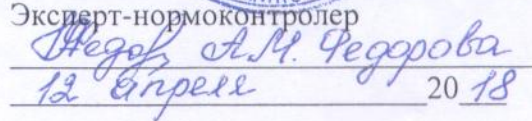 Эксперт-нормоконтролер
А.М. Федорова
12 апреля 2018